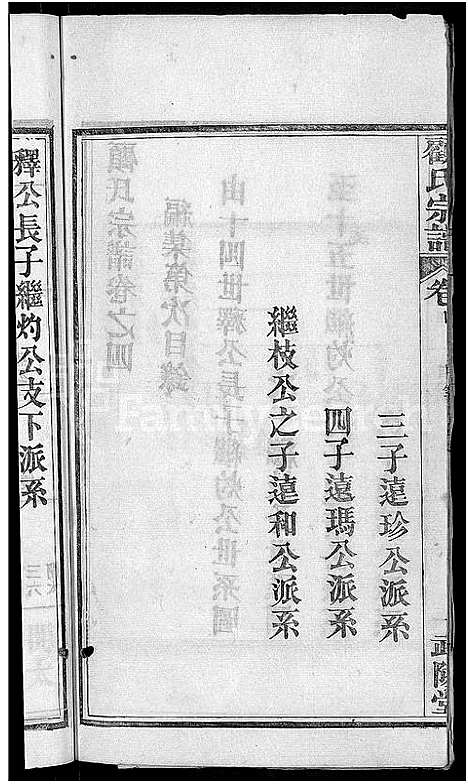 顧氏宗譜
卷
三子遠珍公派系
四子遠瑪公派系
繼枝公之子遠和公派系
武陵堂
釋公長子繼灼公支下派系